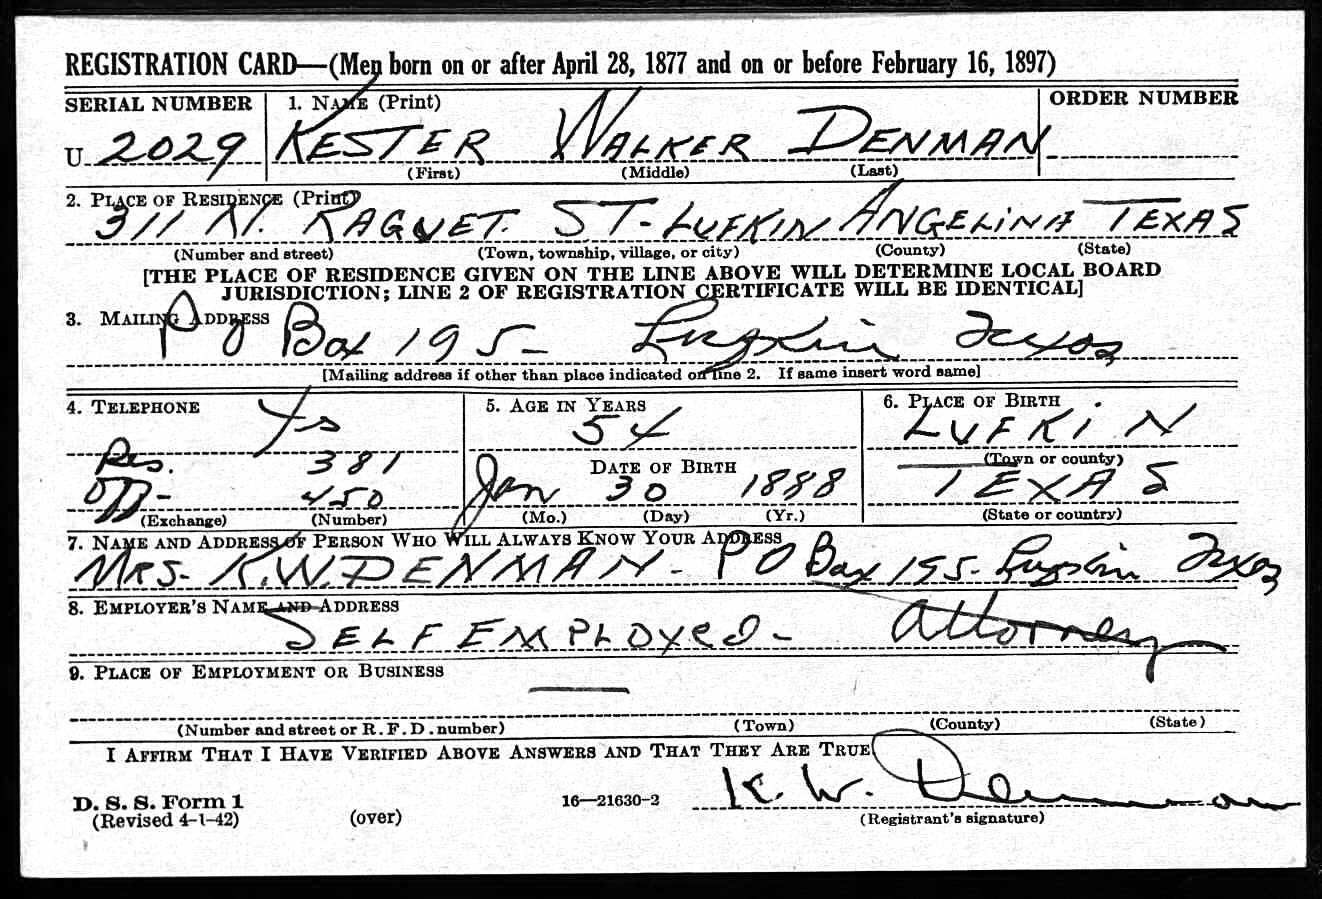 REGISTRATION CARD—(Men born on or after April 28, 1877 and on or before February 16, 1897)
SERIAL NUMBER 1. NAME (Print) ORDER NUMBER
U 2029 KESTER WALKER DENMAN
(First) (Middle) (Last)
2. PLACE OF RESIDENCE (Print)
311 N. RAGUET. ST- LUFKIN ANGELINA TEXAS
(Number and street) (Town, township, village, or city) (County) (State)
[THE PLACE OF RESIDENCE GIVEN ON THE LINE ABOVE WILL DETERMINE LOCAL BOARD
JURISDICTION; LINE 2 OF REGISTRATION CERTIFICATE WILL BE IDENTICAL]
3. MAILING ADDRESS
P O Box 195- Lufkin Texas
[Mailing address if other than place indicated on line 2. If same insert word same]
4. TELEPHONE 5. AGE IN YEARS 6. PLACE OF BIRTH
Ys 54 LUFKIN
(Town or county)
Res. 381 DATE OF BIRTH
Off- 450 Jan 30 1888 TEXAS
(Exchange) (Number) (Mo.) (Day) (Yr.) (State or country)
7. NAME AND ADDRESS OF PERSON WHO WILL ALWAYS KNOW YOUR ADDRESS
MRS- K.W. DENMAN- P O Box 195- Lufkin Texas
8. EMPLOYER'S NAME AND ADDRESS
SELF EMPLOYED- Attorney
9. PLACE OF EMPLOYMENT OR BUSINESS
—
(Number and street or R. F. D. number) (Town) (County) (State)
I AFFIRM THAT I HAVE VERIFIED ABOVE ANSWERS AND THAT THEY ARE TRUE
D. S. S. Form 1
(Revised 4-1-42) (over) 16—21630-2 K. W. Denman
(Registrant's signature)